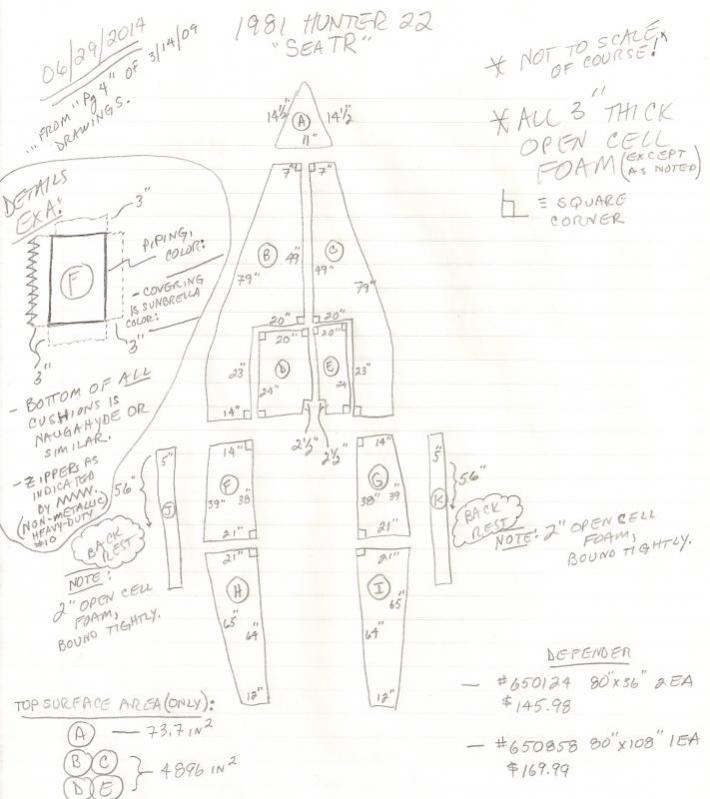 06/29/2014
"FROM "Pg 4" OF 3/14/09
DRAWINGS.
1981 HUNTER 22
"SEATR"
* NOT TO SCALE
OF COURSE!*
* ALL 3" THICK
OPEN CELL
FOAM (EXCEPT
AS NOTED)
≡ SQUARE
CORNER
14½" 14½
A
11"
7" 7"
B C
49" 49"
79" 79"
20" 20"
20" 20"
D E
23" 24" 24 23"
14"
2½" 2½"
DETAILS
EXA:
3"
PIPING,
COLOR:
F
- COVERING
IS SUNBRELLA
COLOR:
3" 3"
- BOTTOM OF ALL
CUSHIONS IS
NAUGAHYDE OR
SIMILAR.
- ZIPPERS AS
INDICATED
BY
(NON-METALLIC)
HEAVY-DUTY
#10
5"
56"
J
BACK
REST
NOTE:
2" OPEN CELL
FOAM,
BOUND TIGHTLY.
14"
F
39" 38"
21"
21"
H
65" 64"
12"
14"
G
38" 39
21"
21"
I
65"
64"
12"
5"
56"
K
BACK
REST
NOTE: 2" OPEN CELL
FOAM,
BOUND TIGHTLY.
DEFENDER
- #650124 80"X36" 2 EA
$145.98
- #650858 80"X108" 1EA
$169.99
TOP SURFACE AREA (ONLY):
A - 73.7 IN²
B C
D E
- 4896 IN²